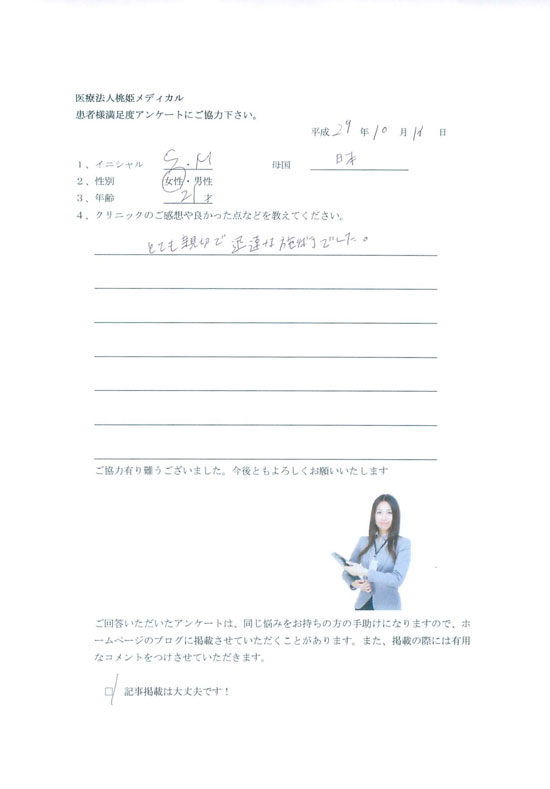 医療法人桃姫メディカル
患者様満足度アンケートにご協力下さい。
平成 29 年 10 月 日
1、イニシャル S.M 母国 日本
2、性別 女性・男性
3、年齢 21 才
4、クリニックのご感想や良かった点などを教えてください。
とても親切で 迅速な施術でした。
ご協力有り難うございました。今後ともよろしくお願いいたします
ご回答いただいたアンケートは、同じ悩みをお持ちの方の手助けになりますので、ホ
ームページのブログに掲載させていただくことがあります。また、掲載の際には有用
なコメントをつけさせていただきます。
□ 記事掲載は大丈夫です！